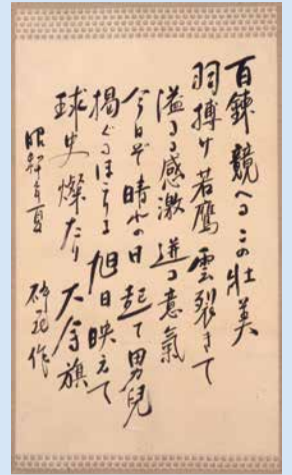 百錬競へるこの壮美
羽搏け若鷹雲裂きて
溢るゝ感激迸る意氣
今日ぞ晴れの日起て男児
掲ぐるほこり旭日映えて
球史燦たり大会旗
昭和 年夏
砕花作